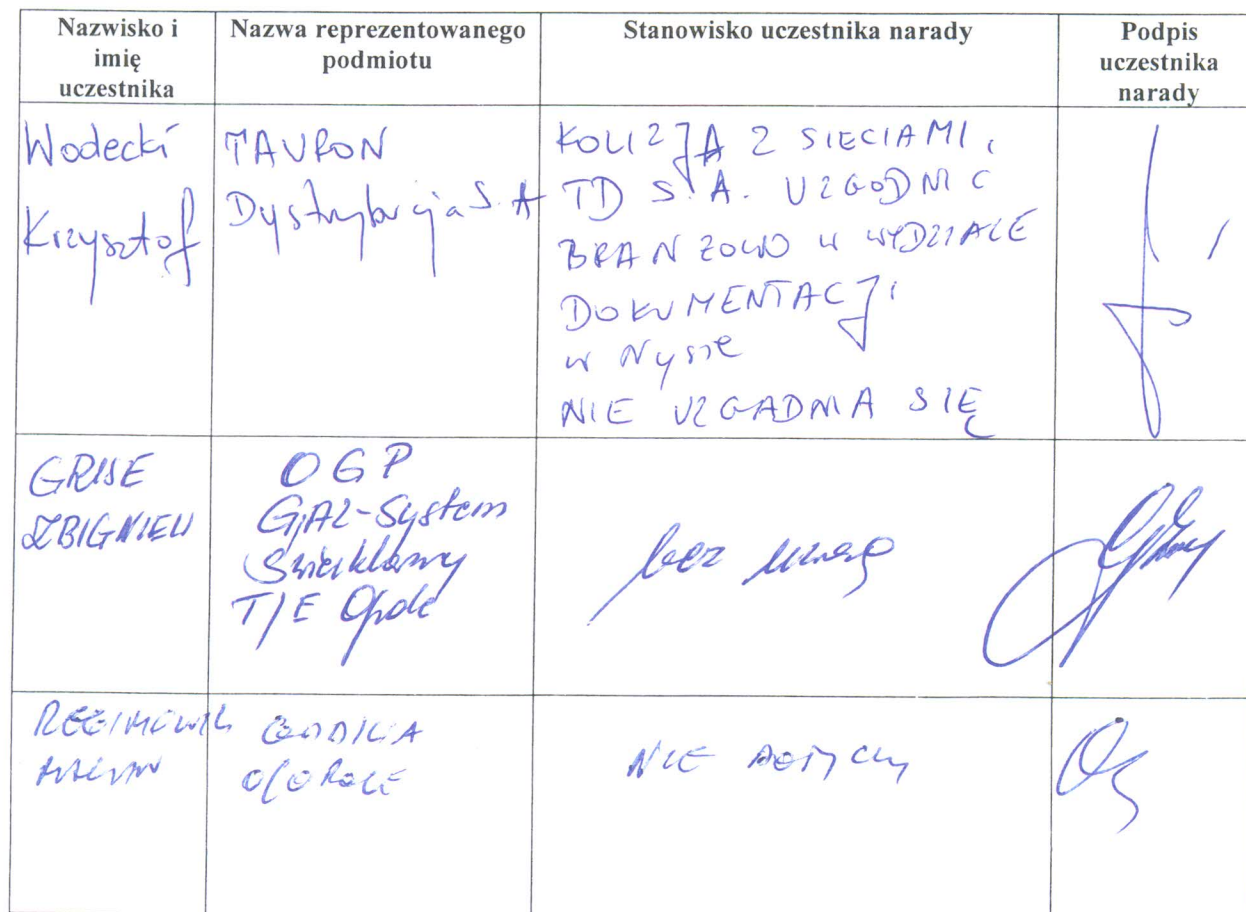 Nazwisko i
imię
uczestnika
Nazwa reprezentowanego
podmiotu
Stanowisko uczestnika narady
Podpis
uczestnika
narady
Wodecki
Krzysztof
TAURON
Dystrybucja S.A
KOLIZJA Z SIECIAMI,
TD S.A. UZGODNIC
BRANZOWO W WYDZIALE
DOKUMENTACJI
w Nysie
NIE UZGADNIA SIĘ
ZBIGNIEW
OGP
GAZ-System
Świerklany
T/E Opole
bez uwag
O/OPOLE
NIE DOTYCZY